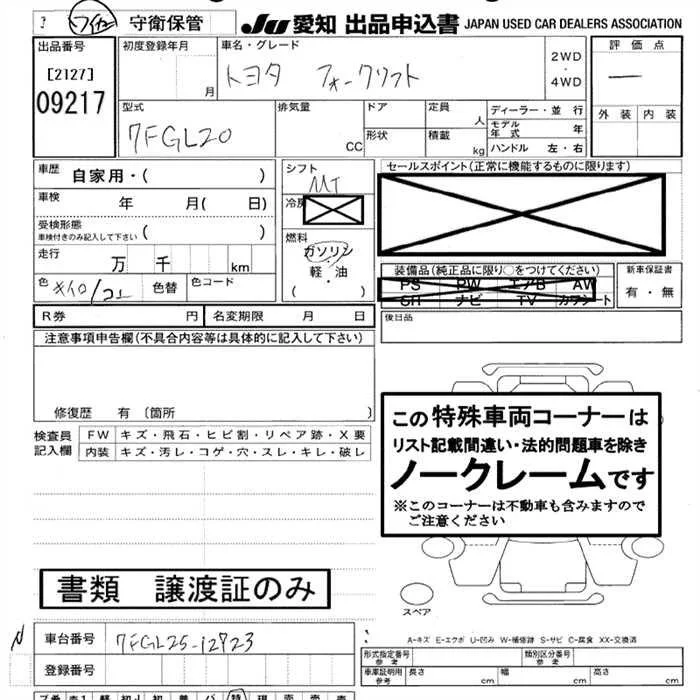 守衛保管
JU 愛知 出品申込書 JAPAN USED CAR DEALERS ASSOCIATION
出品番号
[2127]
09217
初度登録年月
月
車名・グレード
トヨタ フォークリフト
2WD
・
4WD
評価点
―
外装 内装
型式
7FGL20
排気量
CC
ドア
形状
定員
人
積載
kg
ディーラー・並行
モデル年式 年
ハンドル 左・右
車歴
自家用・( )
車検
年 月( 日)
受検形態
車検付きのみ記入して下さい ( )
走行
万 千 km
色
キイロ/コエ
色替
色コード
シフト
MT
冷房
燃料
ガソリン
軽・油
( )
セールスポイント(正常に機能するものに限ります)
装備品(純正品に限り○をつけてください)
PS PW エアB AW
SR ナビ TV カワシート
新車保証書
有・無
後日品
R券 円
名変期限 月 日
注意事項申告欄(不具合内容等は具体的に記入して下さい)
修復歴 有〔箇所 〕
検査員
記入欄
FW キズ・飛石・ヒビ割・リペア跡・X要
内装 キズ・汚レ・コゲ・穴・スレ・キレ・破レ
この特殊車両コーナーは
リスト記載間違い・法的問題車を除き
ノークレームです
※このコーナーは不動車も含みますので
ご注意ください
書類 譲渡証のみ
スペア
A-キズ E-エクボ U-凹み W-補修跡 S-サビ C-腐食 XX-交換済
N
車台番号
7FGL25-12723
登録番号
形式指定番号
参考
類別区分番号
参考
車庫証明用
参考
長さ cm
幅 cm
高さ cm